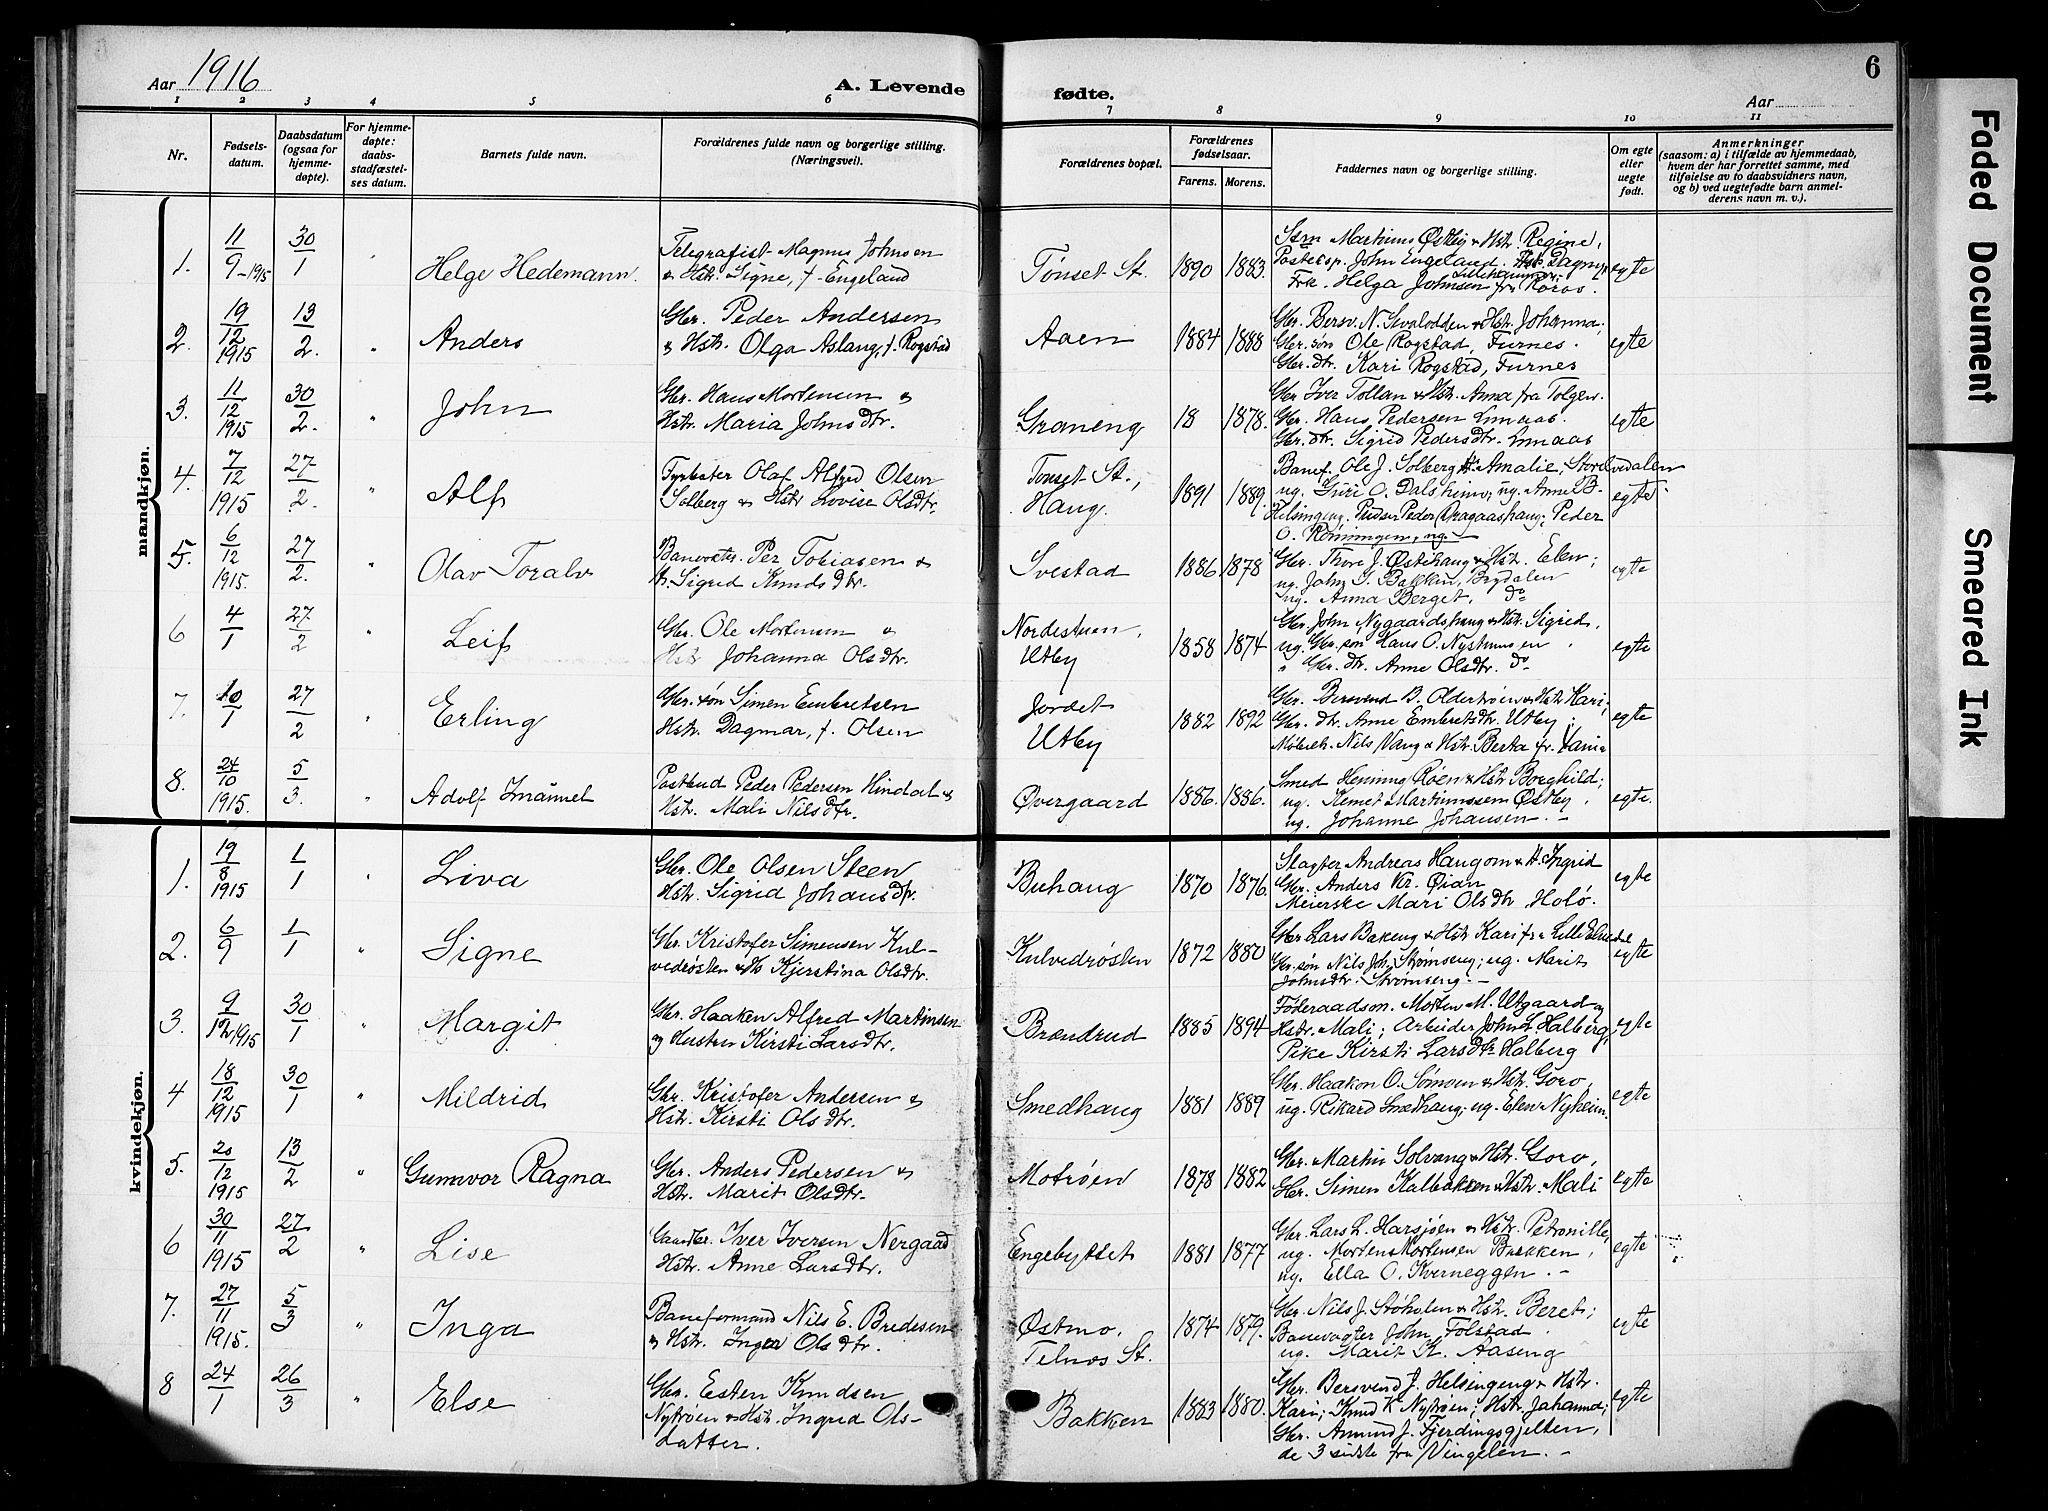 Aar 1916
A. Levende fødte.
6
Aar
1 2 3 4 5 6 7 8 9 10 11
Nr.
Fødsels-
datum.
Daabsdatum
(ogsaa for
hjemme-
døpte).
For hjemme-
døpte:
daabs-
stadfæstel-
ses datum.
Barnets fulde navn.
Forældrenes fulde navn og borgerlige stilling.
(Næringsvei).
Forældrenes bopæl.
Forældrenes
fødselsaar.
Farens. Morens.
Faddernes navn og borgerlige stilling.
Om egte
eller
uegte
født.
Anmerkninger
(saasom: a) i tilfælde av hjemmedaab,
hvem der har forrettet samme, med
tilføielse av to daabsvidners navn,
og b) ved uegtefødte barn anmel-
derens navn m. v.).
mandkjøn.
1. 11/9-1915 30/1 " Helge Hedemann.
Telegrafist Magnus Johnsen
& Hstr. Signe, f. Engeland
Tønset St. 1890 1883.
Martinus Østby & Hstr. Regine,
Posteksp. John Engeland. Frk Dagny
Lillehammer
Frk. Helga Johnsen fra Røros.
egte
2. 19/12 1915 13/2. " Anders
Gbr. Peder Andersen
& Hstr. Olga Aslaug, f. Rogstad
Aaen 1884 1888
Gbr. Bersv. N. Svalodden & Hstr. Johanna;
Gbr. søn Ole Rogstad, Furnes.
Gbr. dtr. Kari Rogstad, Furnes
egte
3. 11/12 1915 30/2. " John
Gbr. Hans Mortensen &
Hstr. Maria Johnsdtr.
Graneng 18 1878.
Gbr Iver Tollan & Hstr. Anna fra Tolgen.
Gbr. Hans Pedersen Lmaas.
Gbr. dtr. Sigrid Pedersdtr. Lmaas
egte
4. 7/12 1915 27/2. " Alf
Fyrbøter Olaf Alfred Olsen
Solberg & Hstr Lovise Olsdtr.
Tønset St.,
Haug. 1891 1889.
Banef. Ole J. Solberg H. Amalie, Storelvedalen
ug. Guri O. Dalsheim, ug. Anne B.
Helsingeng. Peder Dragaashaug; Peder
O. Rønningen, ug.
egte
5. 6/12 1915. 27/2. " Olav Toralv
Banevokter. Per Tobiasen &
H. Sigrid Knudsdtr.
Svestad 1886. 1878
Gbr. Thore J. Østihaug & Hstr. Elen;
ug. John S. Bakken, Brydalen
ug. Anna Berget, do
egte
6 4/1 27/2 " Leif
Gbr. Ole Mortensen &
Hstr Johanna Olsdtr.
Nordistuen,
Utby 1858 1874
Gbr. John Nygaardshaug & Hstr. Sigrid,
ug. Gbr. søn Hans O. Nystuen
" Gbr. dtr. Anne Olsdtr. do
egte
7. 10/1 27/2 " Erling
Gbr. søn Simen Embretsen
Hstr. Dagmar, f. Olsen
Jordet
Utby 1882 1892
Gbr. Bersvend B. Oldertrøen & Hstr Kari;
Gbr. dtr. Anne Embretsdtr. Utby;
Nils Vang & Hstr. Berta
egte
8. 24/10 1915. 5/3. " Adolf Imånuel
Postbud Peder Pedersen Hindal &
Hstr. Mali Nilsdtr.
Øvergaard 1886. 1886.
Smed Henning Røen & Hstr Borghild;
ug. Kemet Martinussen Østby,
ug. Johanne Johansen. -
egte.
kvindekjøn.
1. 19/8 1915 1/1 " Liva
Gbr. Ole Olsen Steen
Hstr. Sigrid Johansdtr.
Buhaug 1870 1876.
Slagter Andreas Haugom & H. Ingrid
Gbr. Anders Kr. Øian
Meierske Mari Olsdtr Holø.
egte
2. 6/9 1/1 " Signe
Gbr. Kristofer Simensen Kul-
vedrøsten & H. Kjerstina Olsdtr.
Kulvedrøsten 1872 1880
Gbr Lars Bakeng & Hstr Kari fr. Lille Elvedal
Gbr. søn Nils Joh. Strømseng; ug. Marit
Johnsdtr. Strømseng. -
egte
3. 9/12 1915 30/1 " Margit
Gbr. Haaken Alfred Martinsen
og Hustru Kirsti Larsdtr.
Brandrud 1885 1894
Føderaadsm. Morten M. Utgaard og
Hstr. Mali; Arbeider John L. Halberg,
Pike Kirsti Larsdtr Halberg
egte
4 18/12 1915 30/1 " Mildrid
Gbr. Kristofer Andersen &
Hstr. Kirsti Olsdtr.
Smedhaug 1881 1889
Gbr. Haakon O. Sømoen & Hstr. Goro,
ug. Rikard Smedhaug; ug. Elen Nyheim.
egte
5. 20/12 1915 13/2 " Gunvor Ragna
Gbr. Anders Pedersen &
Hstr. Marit Olsdtr.
Motrøen 1878 1882
Gbr. Martin Solvang & Hstr. Goro,
Gbr. Simen Kalbakken & Hstr. Mali
egte
6 30/11 1915 27/2 " Lise
Iver Iversen Nergaad
Hstr. Anne Larsdtr.
Engebyttet 1881 1877
Gbr. Lars L. Harsjøen & Hstr. Petronille,
ug. Morten Mortensen Bakken,
ug. Ella O. Kverneggen. -
egte
7. 27/11 1915. 5/3 " Inga
Baneformand Nils E. Bredesen
& Hstr. Inger Olsdtr.
Østmo,
Telnes St. 1874 1879.
Gbr. Nils J. Støholen & Hstr. Beret;
Banevogter John Folstad
ug. Marit K. Aaseng
egte
8 24/1 26/3 " Else
Gbr. Esten Knudsen
Nytrøen & Hstr. Ingrid Ols-
datter.
Bakken 1883 1880.
Gbr. Bersvend J. Helsingeng & Hstr.
Kari; Knud K Nytrøen; Hstr. Johanna;
Gbr. Amund J. Fjerdingsgjelten,
de 3 sidste fra Vingelen. -
egte
Faded Document
Smeared Ink